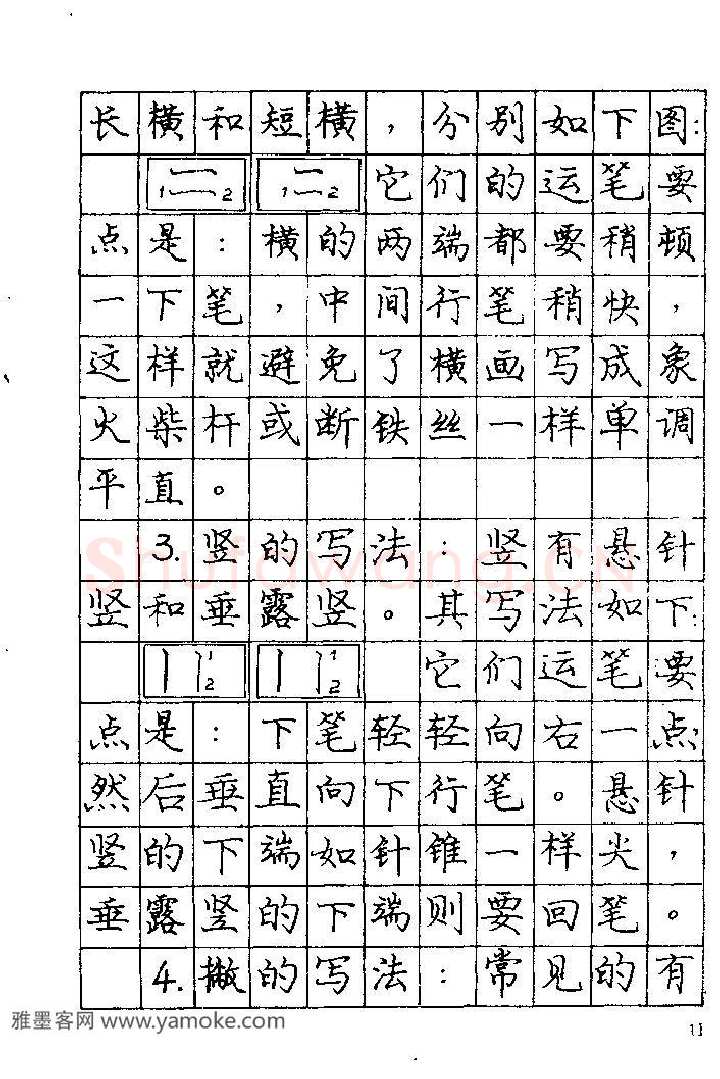 长横和短横，分别如下图：
1 2 1 2 它们的运笔要
点是：横的两端都要稍顿
一下笔，中间行笔稍快，
这样就避免了横画写成象
火柴杆或断铁丝一样单调
平直。
3.竖的写法：竖有悬针
竖和垂露竖。其写法如下：
1 2 1 2 它们运笔要
点是：下笔轻轻向右一点
然后垂直向下行笔。悬针
竖的下端如针锥一样尖，
垂露竖的下端则要回笔。
4.撇的写法：常见的有
shufawang.CN
雅墨客网 www.yamoke.com
11